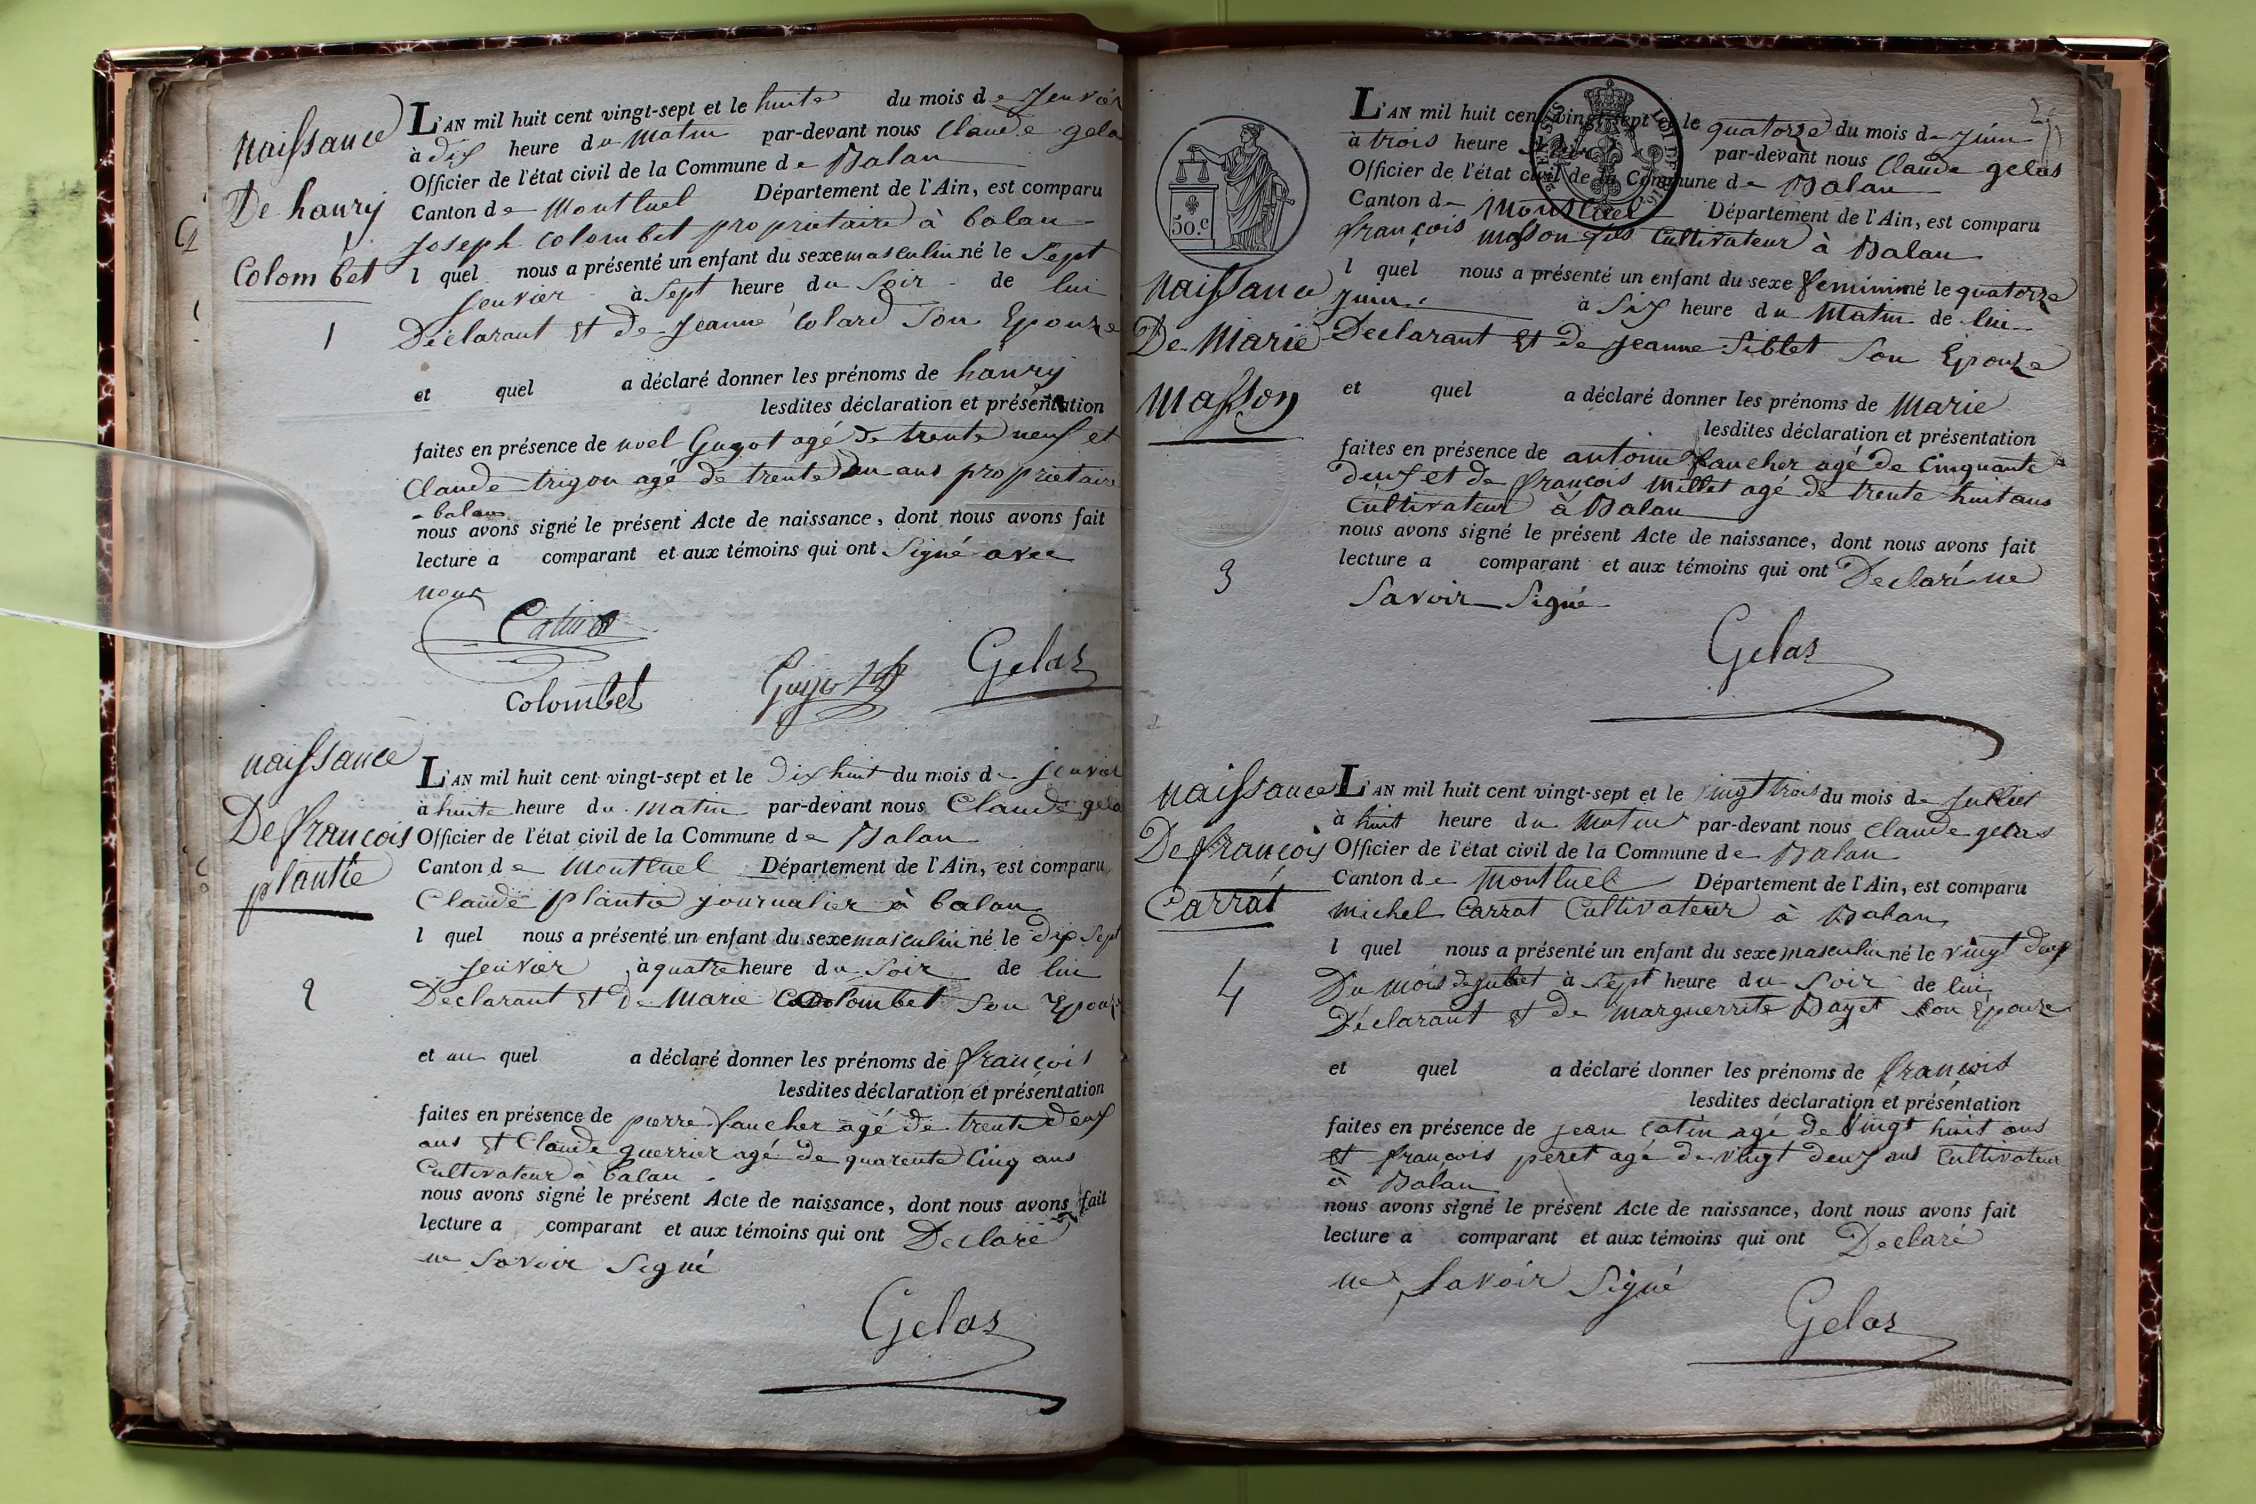 naissance
De hanry
Colombet
1
L'AN mil huit cent vingt-sept et le huite du mois de Jenvier
à dix heure du matin par-devant nous Claude gela
Officier de l'état civil de la Commune de Balan
Canton de Montluel Département de l'Ain, est comparu
joseph Colombet proprietaire à balan
l quel nous a présenté un enfant du sexe masculin né le Sept
Jenvier à Sept heure du Soir de lui
Déclarant Et de Jeanne Colard Son Epouze
et quel a déclaré donner les prénoms de hanry
lesdites déclaration et présentation
faites en présence de noel Guyot agé de trente neuf et
Claude trigon agé de trente un ans proprietaire
a balan
nous avons signé le présent Acte de naissance, dont nous avons fait
lecture a comparant et aux témoins qui ont Signé avec
nous
Colombet
Guyot
Gelas
naissance
De françois
plantie
2
L'AN mil huit cent vingt-sept et le Dix huit du mois de Jenvier
à huite heure du matin par-devant nous Claude gela
Officier de l'état civil de la Commune de Balan
Canton de Montluel Département de l'Ain, est comparu
Claude plantie journalier à balan
l quel nous a présenté un enfant du sexe masculin né le dix Sept
Jenvier à quatre heure du Soir de lui
Declarant Et De Marie Colombet Son Epouze
et au quel a déclaré donner les prénoms de françois
lesdites déclaration et présentation
faites en présence de pierre faucher agé de trente deux
ans Et Claude guerrier agé de quarente Cinq ans
Cultivateur à balan
nous avons signé le présent Acte de naissance, dont nous avons fait
lecture a comparant et aux témoins qui ont Declaré
ne Savoir Signé
Gelas
50.C
naissance
De Marie
Masson
3
L'AN mil huit cent vingt-sept et le quatorze du mois de Juin
à trois heure par-devant nous Claude gelas
Officier de l'état civil de la Commune de Balan
Canton de Montluel Département de l'Ain, est comparu
françois masson fils Cultivateur à Balan
l quel nous a présenté un enfant du sexe feminin né le quatorze
juin à Six heure du Matin de lui
Declarant Et de jeanne Siblet Son Epouze
et quel a déclaré donner les prénoms de Marie
lesdites déclaration et présentation
faites en présence de antoine faucher agé de Cinquante
deux et de françois Millet agé de trente huit ans
Cultivateur à Balan
nous avons signé le présent Acte de naissance, dont nous avons fait
lecture a comparant et aux témoins qui ont Declaré ne
Savoir Signé
Gelas
naissance
De françois
Carrat
4
L'AN mil huit cent vingt-sept et le vingt trois du mois de Julliet
à huit heure du Matin par-devant nous Claude gelas
Officier de l'état civil de la Commune de Balan
Canton de Montluel Département de l'Ain, est comparu
Michel Carrat Cultivateur à Balan
l quel nous a présenté un enfant du sexe masculin né le vingt deux
Du mois de Juliet à Sept heure du Soir de lui
Déclarant Et de marguerrite Bayet Son Epouze
et quel a déclaré donner les prénoms de françois
lesdites déclaration et présentation
faites en présence de jean Catin agé de Vingt huit ans
Et françois peret agé de vingt deux ans Cultivateur
à Balan
nous avons signé le présent Acte de naissance, dont nous avons fait
lecture a comparant et aux témoins qui ont Declaré
ne Savoir Signé
Gelas